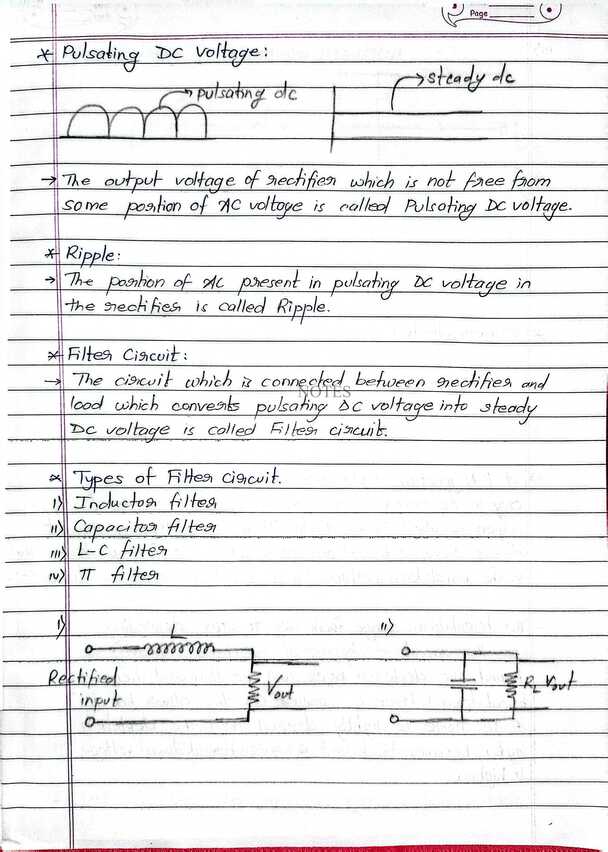 Page
* Pulsating DC Voltage:
pulsating dc
steady dc
→ The output voltage of rectifier which is not free from
some portion of AC voltage is called Pulsating DC voltage.
* Ripple:
→ The portion of AC present in pulsating DC voltage in
the rectifier is called Ripple.
* Filter Circuit:
→ The circuit which is connected between rectifier and
NOTES
load which converts pulsating DC voltage into steady
DC voltage is called Filter circuit.
* Types of Filter circuit.
i) Inductor filter
ii) Capacitor filter
iii) L-C filter
iv) π filter
i)
L
Rectified
input
Vout
ii)
RL Vout